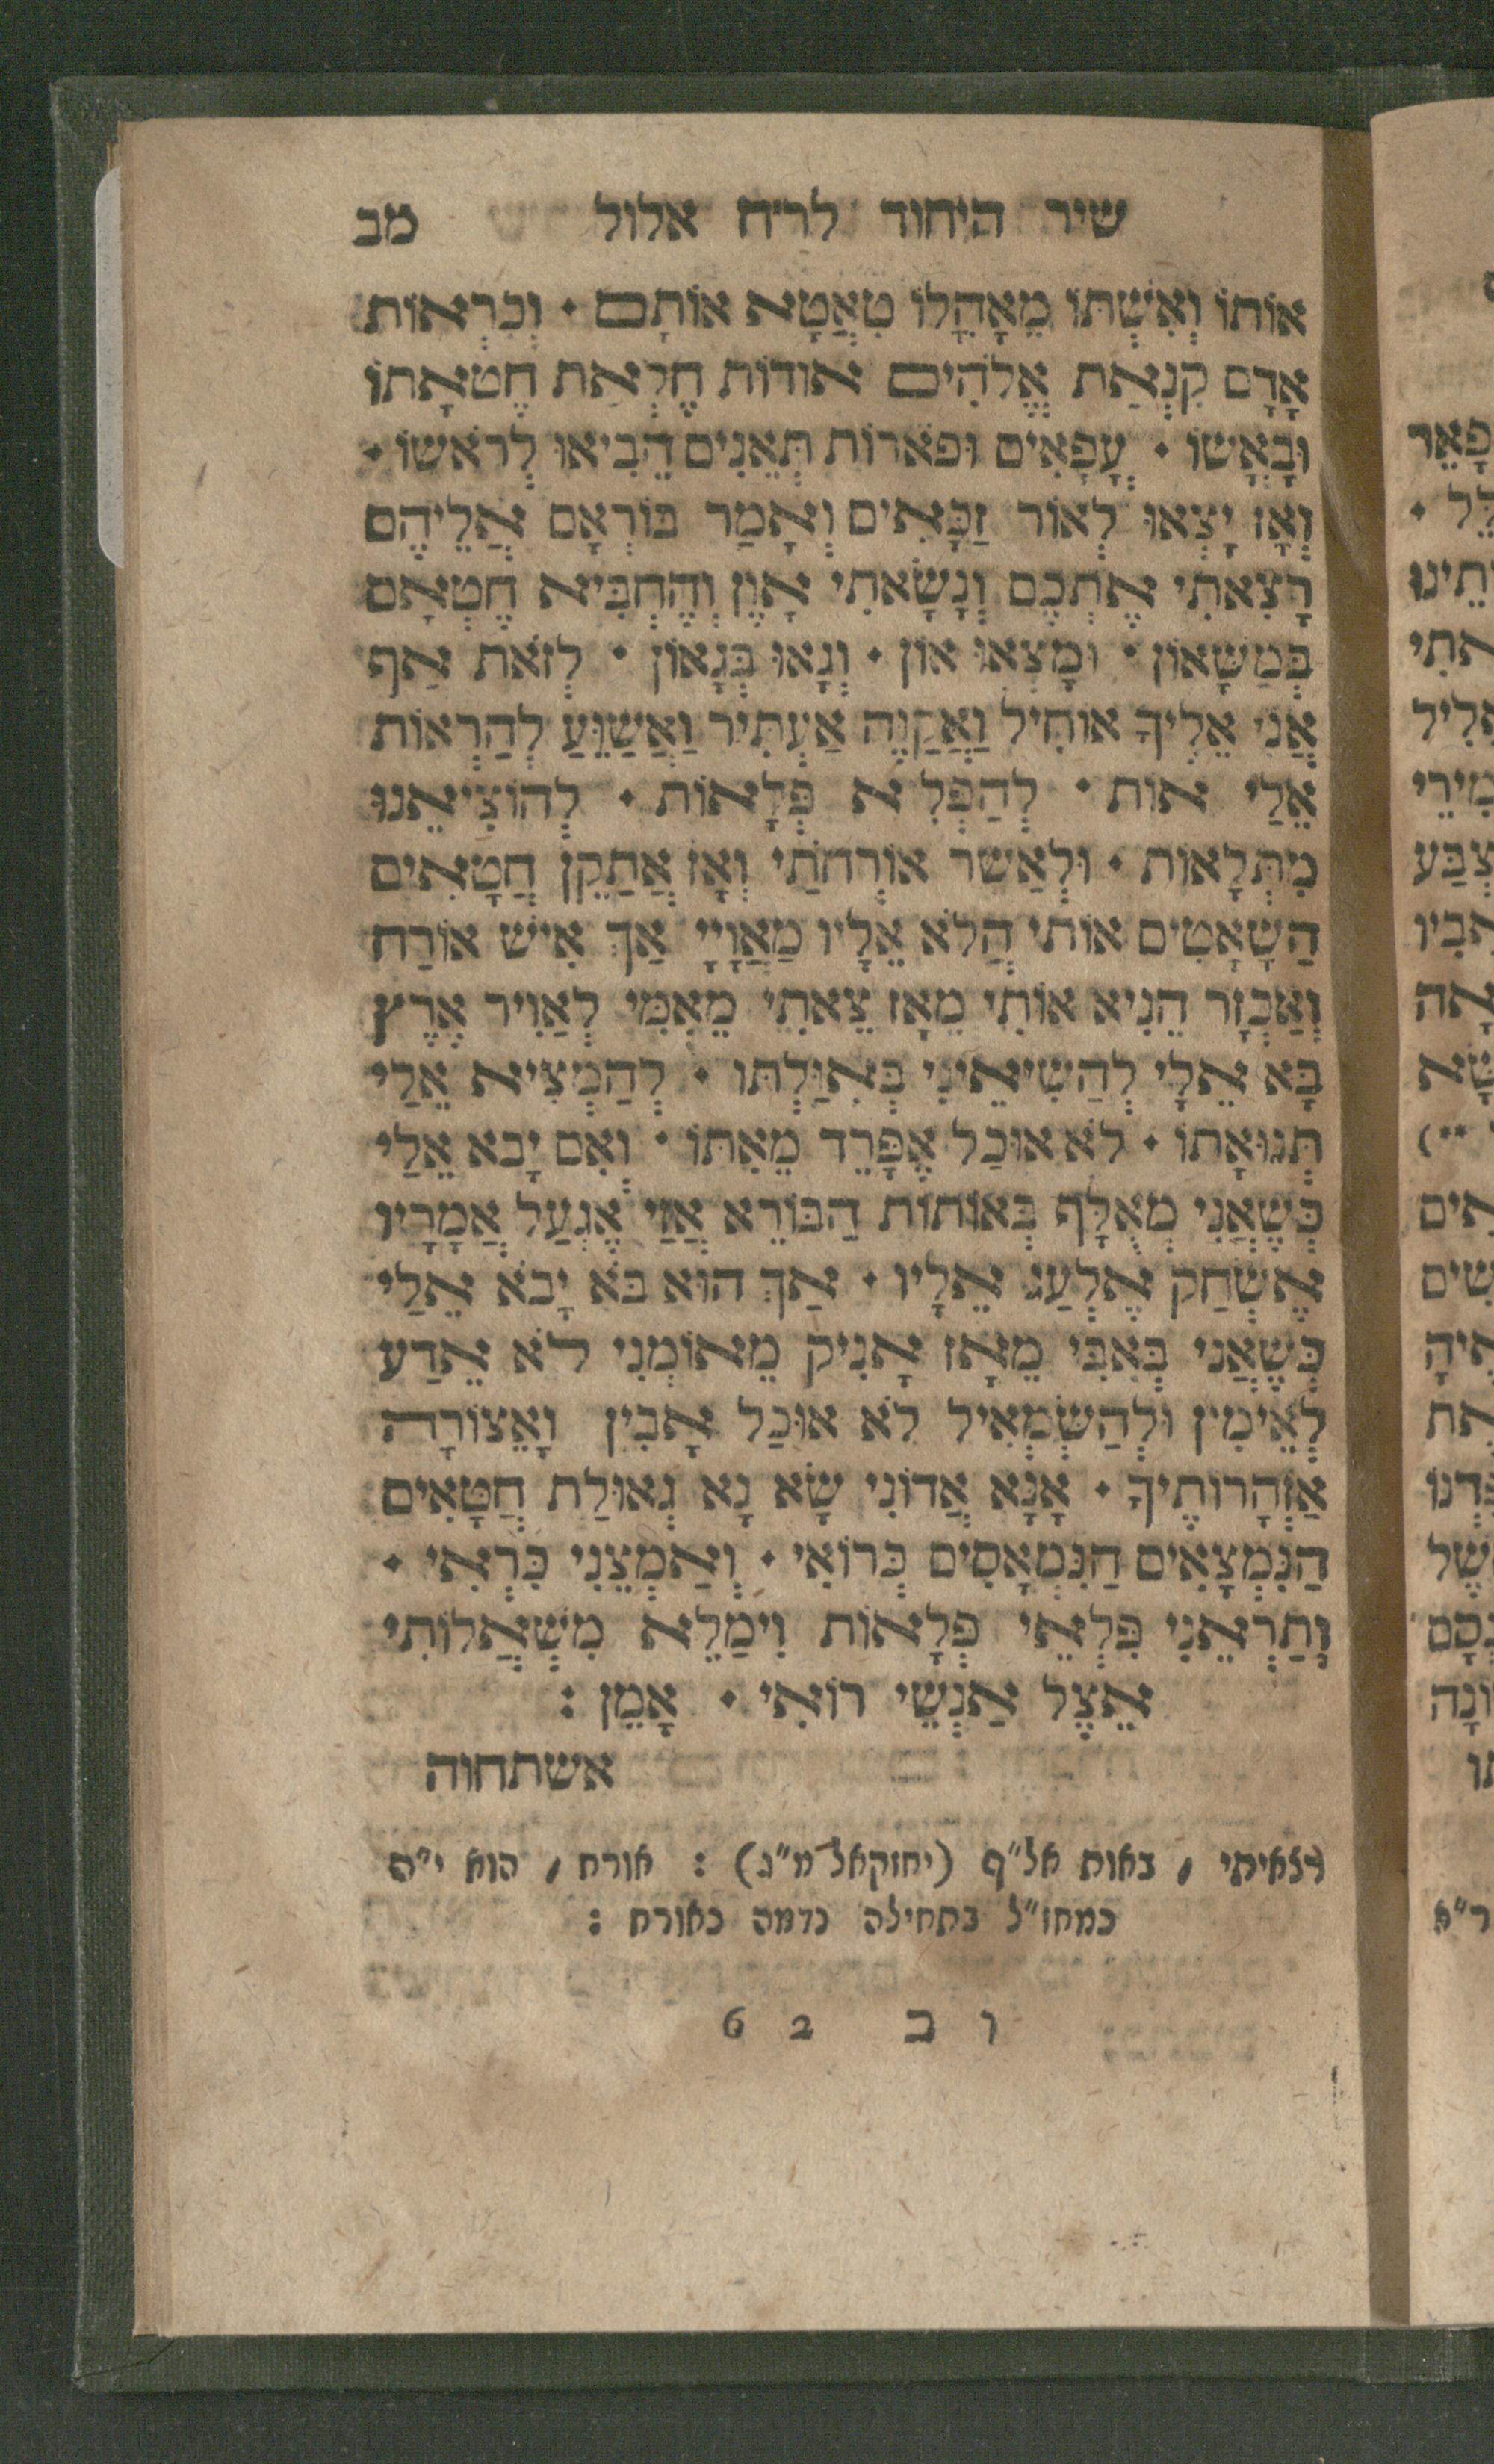 שיר היחוד לר״ח אלול מב
אוֹתוֹ וְאִשְׁתּוֹ מֵאָהֳלוֹ טִאֲטֵא אוֹתָם • וְכִרְאוֹת
אָדָם קִנְאַת אֱלֹהִים אוֹדוֹת חֶלְאַת חַטֹּאתוֹ
וּבָאֳשׁוֹ • עֳפָאִים וּפֹארוֹת תְּאֵנִים הֵבִיאוּ לְרֹאשׁוֹ •
וְאָז יָצְאוּ לְאוֹר זַכָּאִים וְאָמַר בּוֹרְאָם אֲלֵיהֶם
רָצִאתִי אֶתְכֶם וְנָשָׂאתִי אָוֶן וְהֶחְבִּיא חֶטְאָם
בְּמַשָּׁאוֹן • וּמָצְאוּ אוֹן • וְגָאוּ בְּגָאוֹן • לְזֹאת אַף
אֲנִי אֵלֶיךָ אוֹחִיל וַאֲקַוֶּה אַעְתִּיר וַאֲשַׁוֵּעַ לְהַרְאוֹת
אֵלַי אוֹת • לְהַפְלִא פְּלָאוֹת • לְהוֹצִיאֵנוּ
מִתְּלָאוֹת • וּלְאַשֵּׁר אוֹרְחֹתַי וְאָז אֲתַקֵּן חֲטָאִים
הַשָּׁאטִים אוֹתִי הֲלֹא אֵלָיו מַאֲוָיַי אַךְ אִישׁ אוֹרַח
וְאַכְזָר הֵנִיא אוֹתִי מֵאָז צֵאתִי מֵאִמִּי לַאֲוִיר אֶרֶץ
בָּא אֵלַי לְהַשִּׁיאֵנִי בְּאִוַּלְתּוֹ • לְהַמְצִיא אֵלַי
תְּנוּאָתוֹ • לֹא אוּכַל אֶפָּרֵד מֵאִתּוֹ • וְאִם יָבֹא אֵלַי
כְּשֶׁאֲנִי מְאֻלָּף בְּאוֹתוֹת הַבּוֹרֵא אֲזַי אֶגְעַל אֲמָרָיו
אֶשְׂחַק אֶלְעַג אֵלָיו • אַךְ הוּא בֹּא יָבֹא אֵלַי
כְּשֶׁאֲנִי בְּאִבִּי מֵאָז אָנִיק מֵאוֹמְנִי לֹא אֵדַע
לְאֵימִין וּלְהַשְׂמְאִיל לֹא אוּכַל אָבִין וְאֶצּוֹרָה
אַזְהָרוֹתֶיךָ • אָנָּא אֲדוֹנִי שָׂא נָא גְאוּלַת חֲטָאִים
הַנִּמְצָאִים הַנִּמְאָסִים כְּרוֹאִי • וְאַמְּצֵנִי כִּרְאִי •
וְתַרְאֵנִי פִּלְאֵי פְּלָאוֹת וִימַלֵּא מִשְׁאֲלוֹתִי
אֵצֶל אַנְשֵׁי רוֹאִי • אָמֵן :
אשתחוה
רצאיתי , באות אל״ף (יחזקאל מ״ג) : אורח , הוא י״ה
כמחז״ל בתחילה נדמה כאורח :
ו ב 2 6